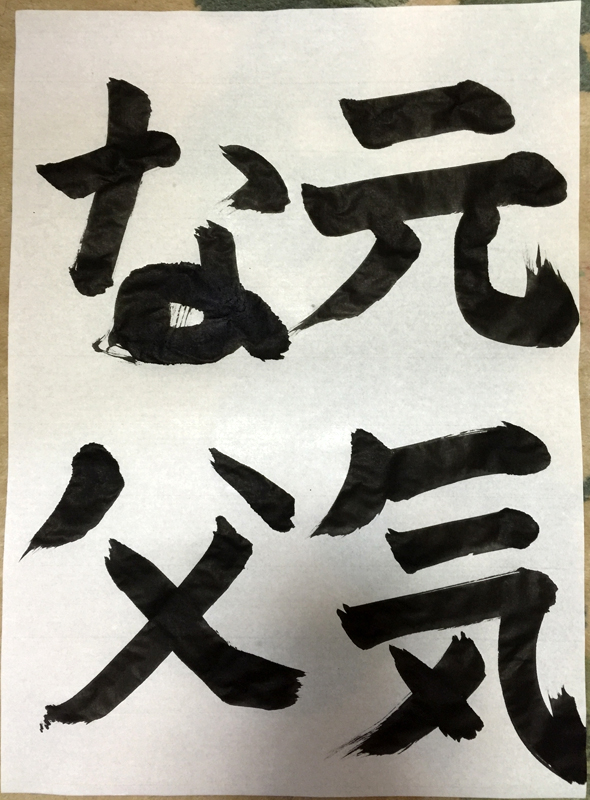 元気
な父